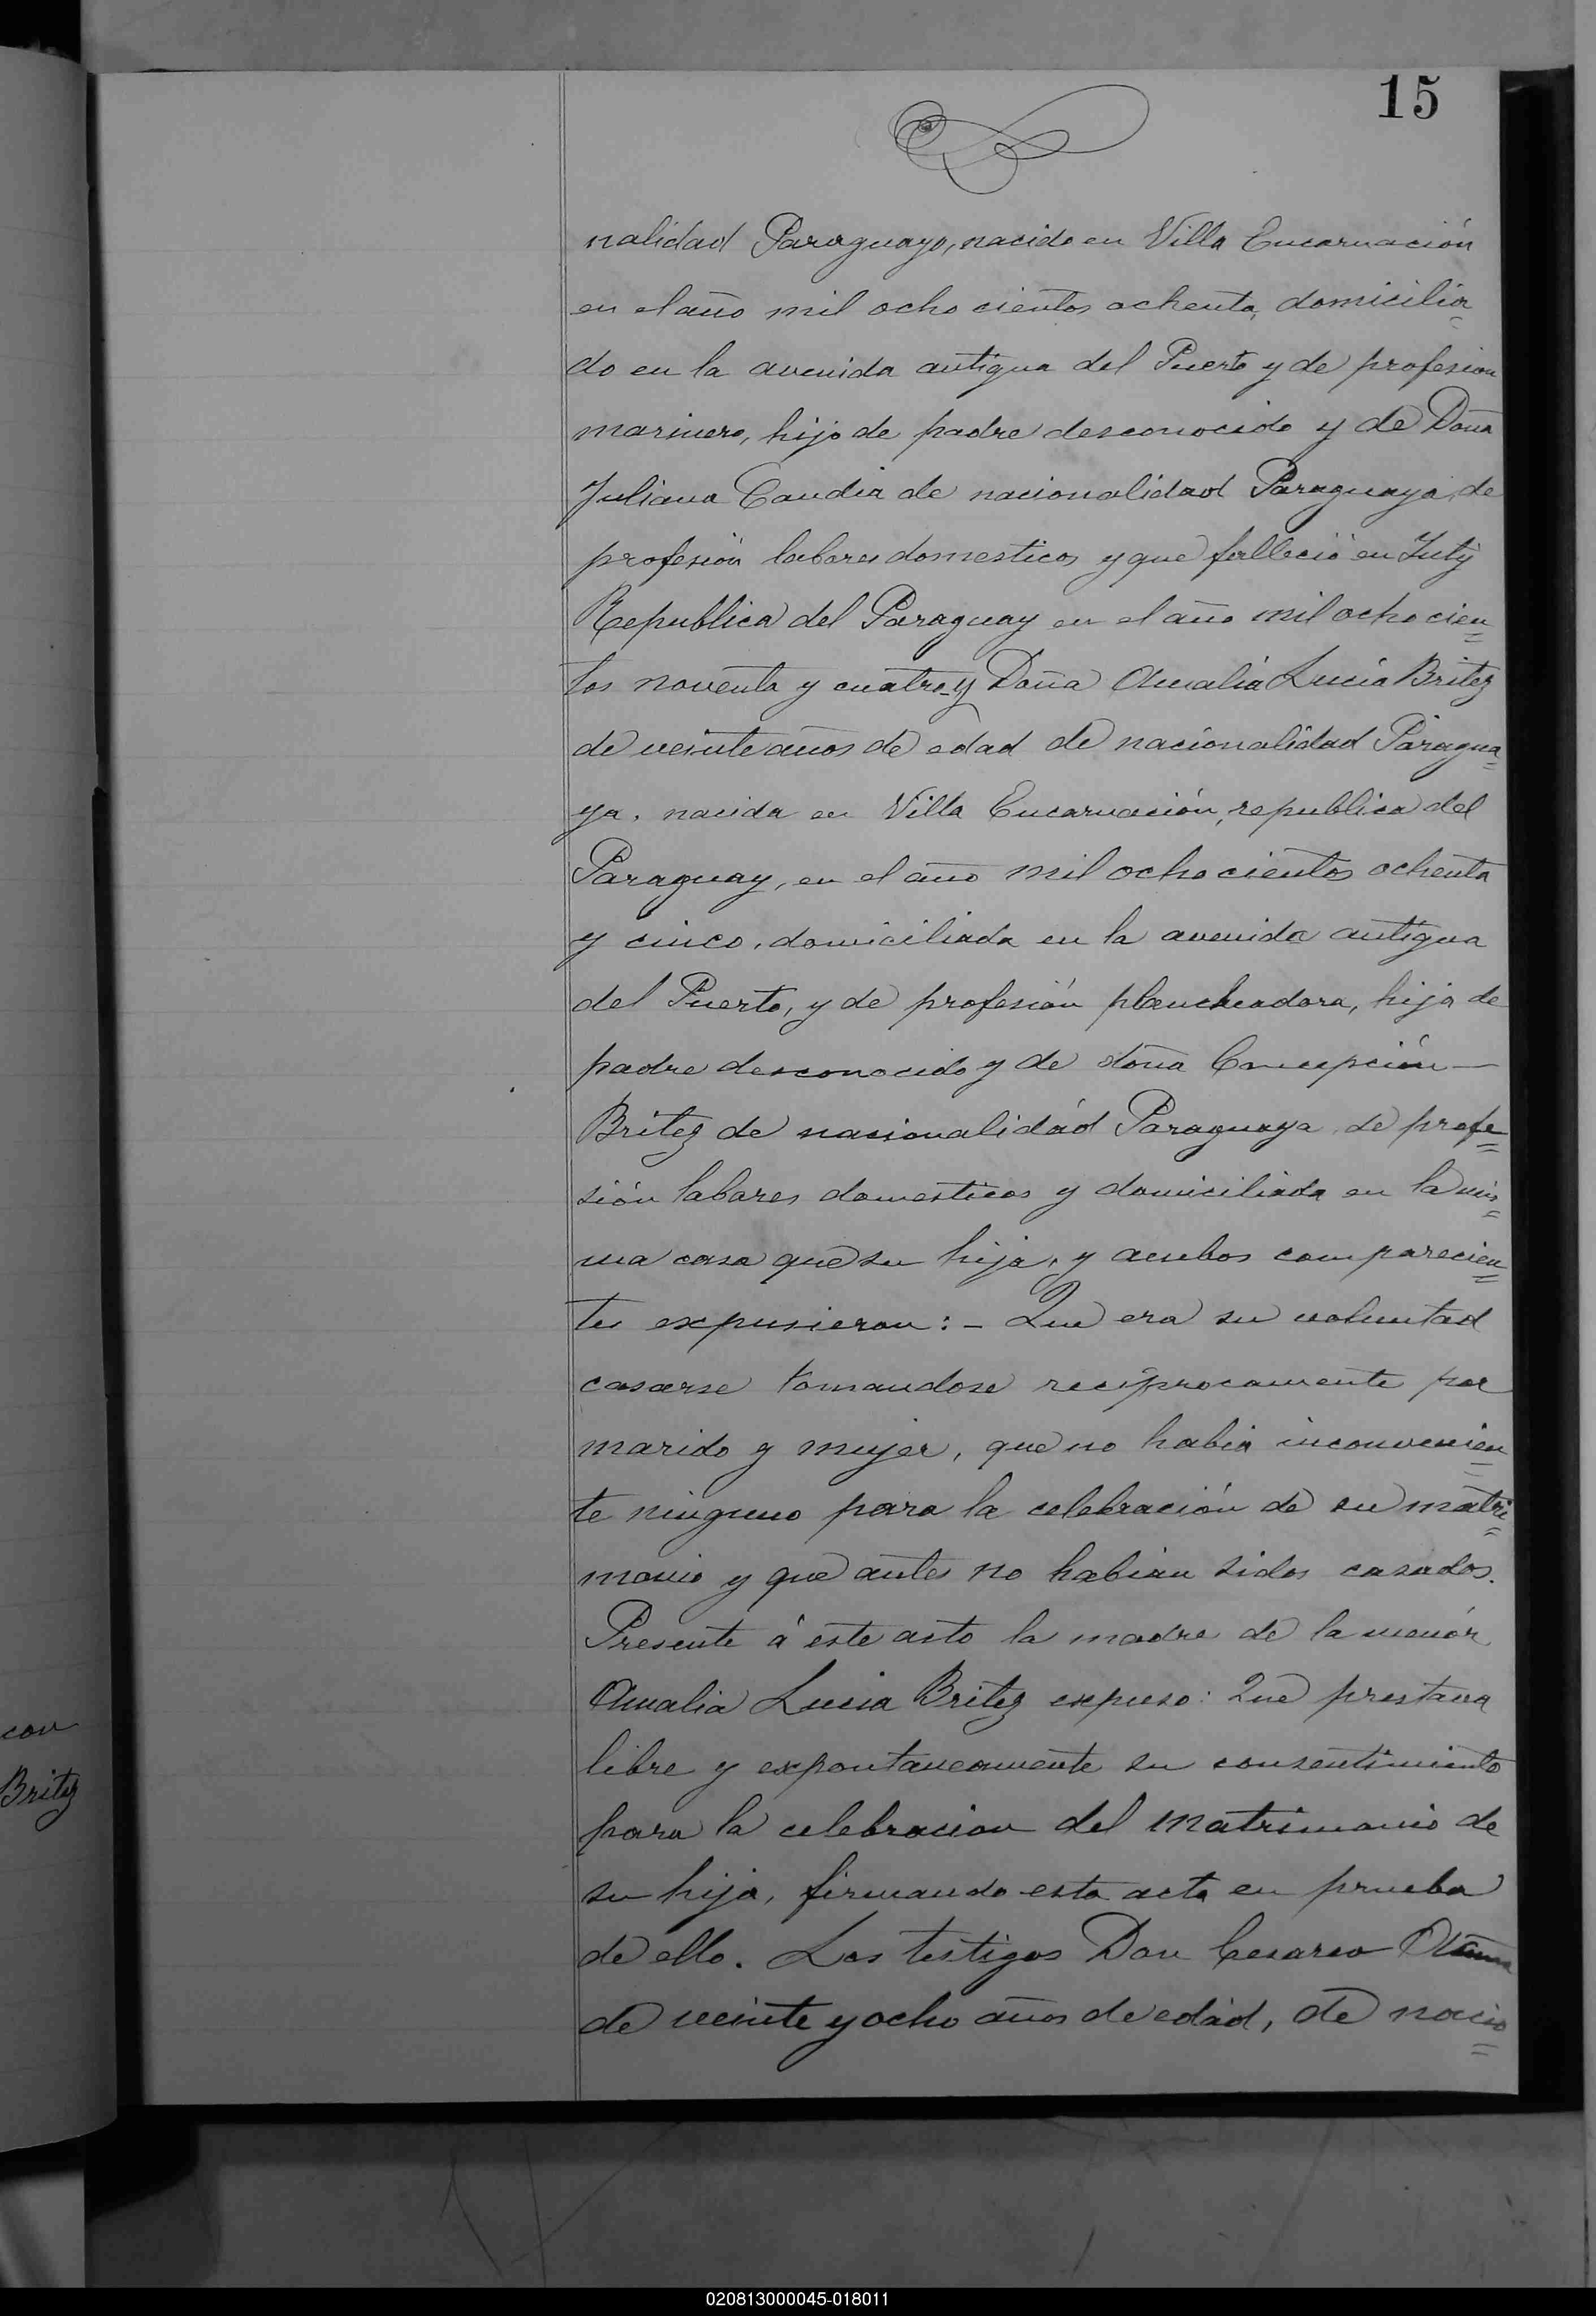 15
nalidad Paraguayo, nacido en Villa Encarnación
en el año mil ocho cientos ochenta, domicilia=
do en la avenida antigua del Puerto y de profesion
marinero, hijo de padre desconocido y de Doña
Juliana Candia de nacionalidad Paraguaya, de
profesión labores domesticos y que falleció en Yuty
Republica del Paraguay en el año mil ocho cien=
tos noventa y cuatro y Doña Amalia Lucia Britez
de veinte años de edad de nacionalidad Paragua=
ya, nacida en Villa Encarnación, republica del
Paraguay, en el año mil ocho cientos ochenta
y cinco, domiciliada en la avenida antigua
del Puerto, y de profesión plancheadora, hija de
padre desconocido y de doña Concepción —
Britez de nacionalidád Paraguaya de profe=
sión labares domesticos y domiciliada en la mis=
ma casa que su hija, y ambos comparecien=
tes expusieron: - Que era su voluntad
casarse tomandose reciprocamente por
marido y mujer, que no habia inconvenien=
te ninguno para la celebración de su matri=
monio y que antes no habian sidos casados.
Presente á este acto la madre de la menór
Amalia Lucia Britez expuso: Que prestava
libre y expontaneamente su consentimiento
para la celebracion del matrimonio de
su hija, firmando esta acta en prueba
de ello. Los testigos Don Cesareo
de veinte y ocho años de edad, de nacio=
con
Britez
020813000045-018011